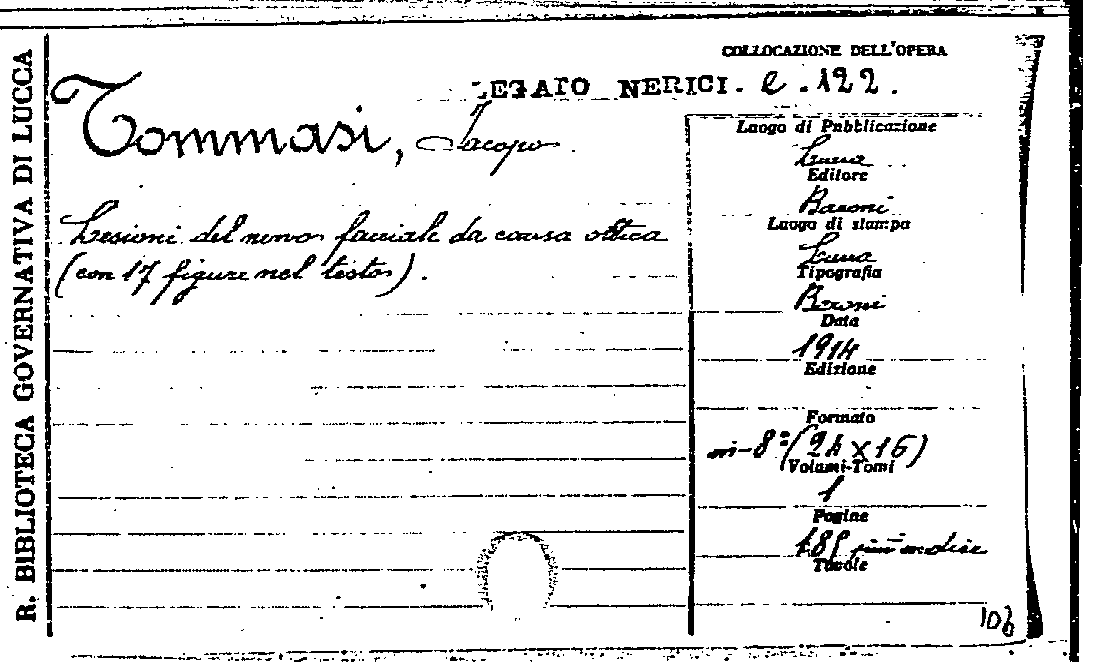 R. BIBLIOTECA GOVERNATIVA DI LUCCA
COLLOCAZIONE DELL'OPERA
LEGATO NERICI. e. 122.
Tommasi, Jacopo
Lesioni del nervo facciale da causa otitica
(con 17 figure nel testo).
Luogo di Pubblicazione
Lucca
Editore
Baroni
Luogo di stampa
Lucca
Tipografia
Baroni
Data
1914
Edizione
Formato
in-8º (24 x 16)
Volumi-Tomi
1
Pagine
185 più indice
Tavole
106